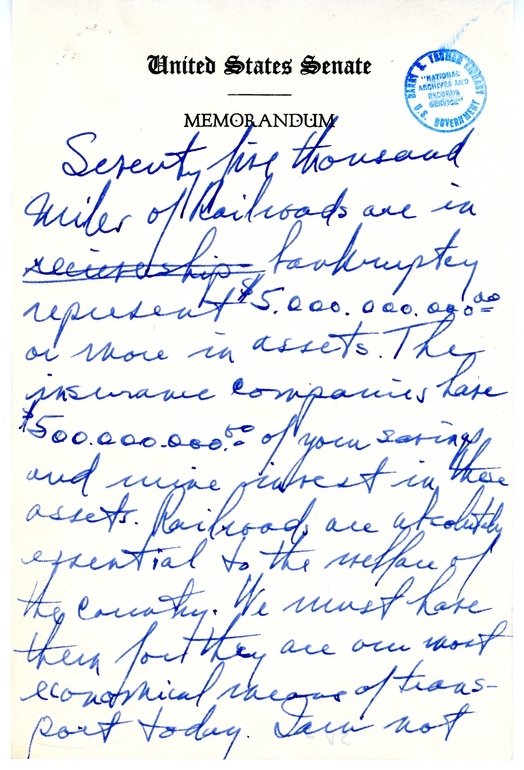 United States Senate
MEMORANDUM
HARRY S. TRUMAN LIBRARY
"NATIONAL
ARCHIVES AND
RECORDS
SERVICE"
U.S. GOVERNMENT
Seventy five thousand
miles of Railroads are in
recievership bankruptcy
represent $5.000.000.000.00
or more in assets. The
insurance companies have
$500.000.000.00 of your savings
and mine invest in these
assets. Railroads are absolutely
essential to the welfare of
the country. We must have
them for they are our most
economical means of trans-
port today. I am not